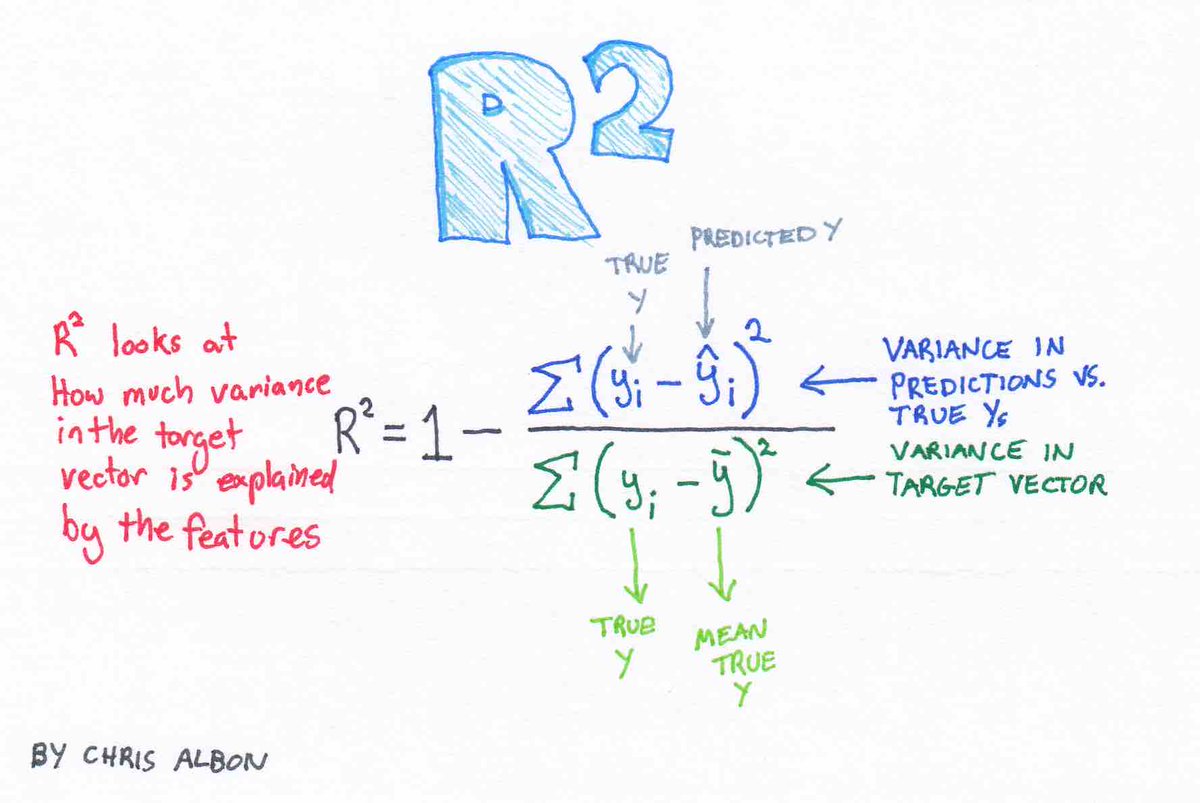 R²
TRUE
y
PREDICTED y
R² looks at
How much variance
in the target
vector is explained
by the features
R² = 1 - Σ(yᵢ - ŷᵢ)² / Σ(yᵢ - ȳ)²
VARIANCE IN
PREDICTIONS VS.
TRUE Ys
VARIANCE IN
TARGET VECTOR
TRUE
y
MEAN
TRUE
y
BY CHRIS ALBON